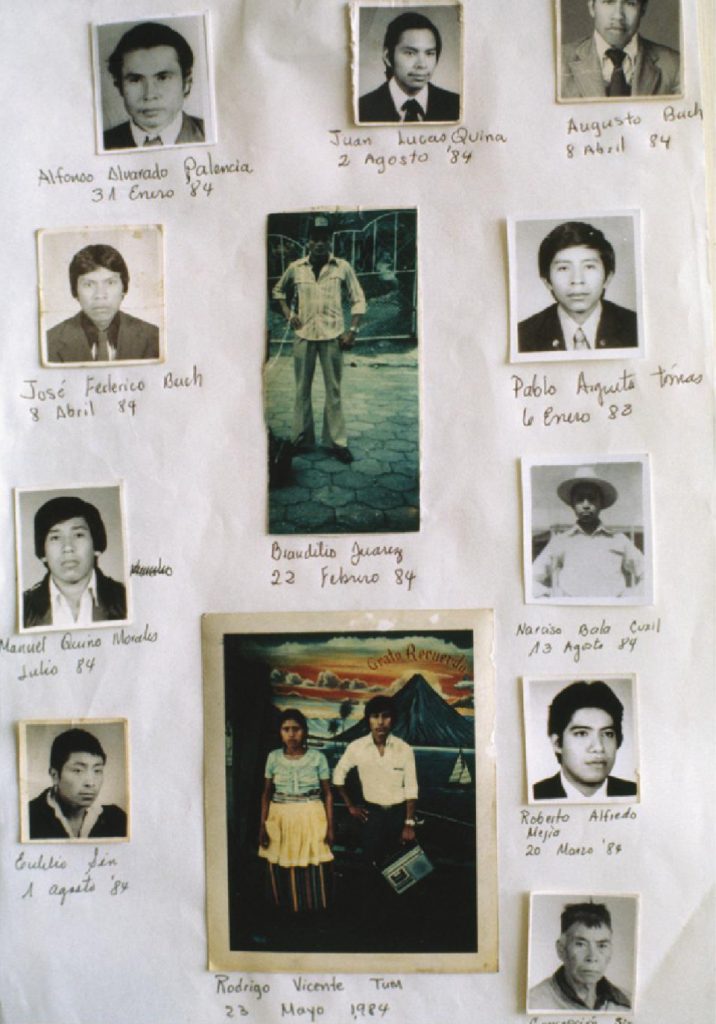 Alfonso Alvarado Palencia
31 Enero '84
Juan Lucas Quina
2 Agosto '84
Augusto Buch
8 Abril 84
José Federico Buch
8 Abril 84
Pablo Argueta Tómas
6 Enero 83
Juarez
22 Febrero 84
Manuel Quino Morales
Julio 84
Narciso Bala
13 Agosto '84
Grato Recuerdo
Roberto Alfredo
Mejia
20 Marzo '84
Sin
1 agosto '84
Rodrigo Vicente Tum
23 Mayo 1984